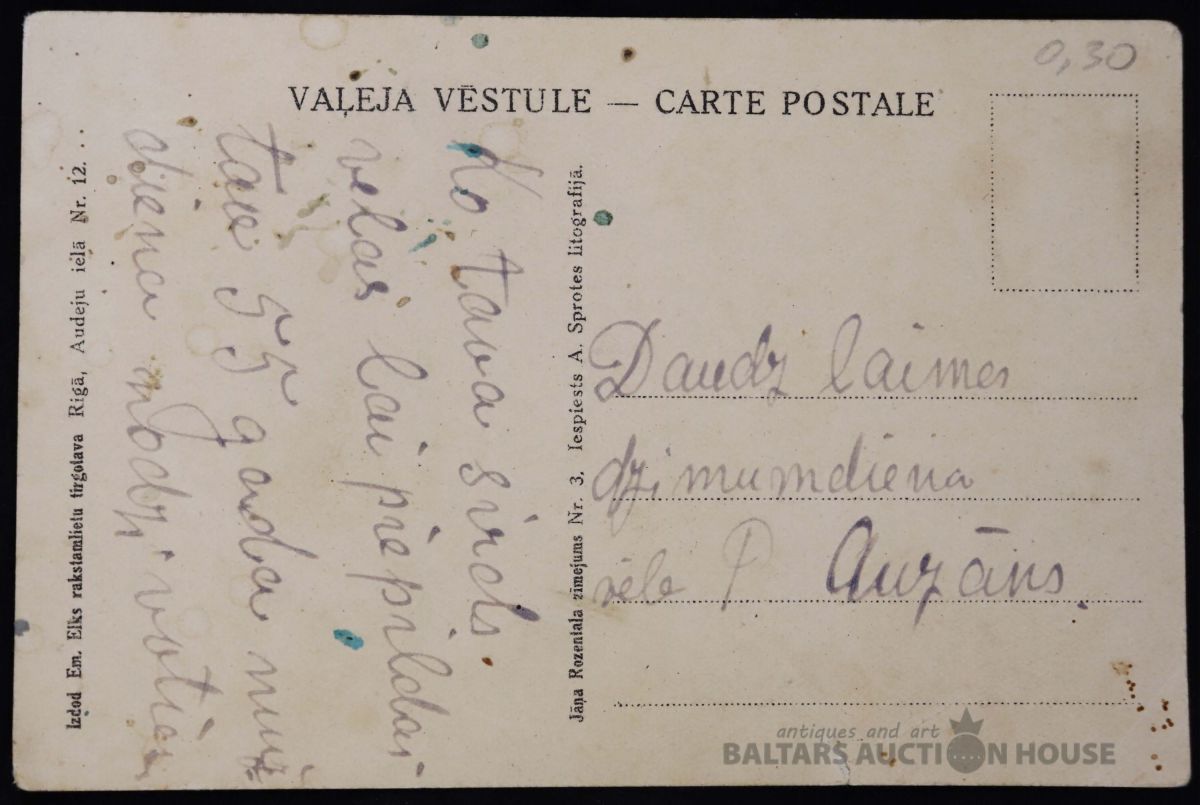 0,30
VAĻEJA VĒSTULE — CARTE POSTALE
Izdod Em. Elks rakstamlietu tirgotava Rigā, Audeju ielā Nr. 12.
Ko tava sirds
vēlas lai piepildas
tavē 55 gada muž
diena
Jāņa Rozentala zimejums Nr. 3. Iespiests A. Sprotes litografijā.
Daudz laimes
dzimumdiena
vēle P Auzāns
antiques and art
BALTARS AUCTION HOUSE